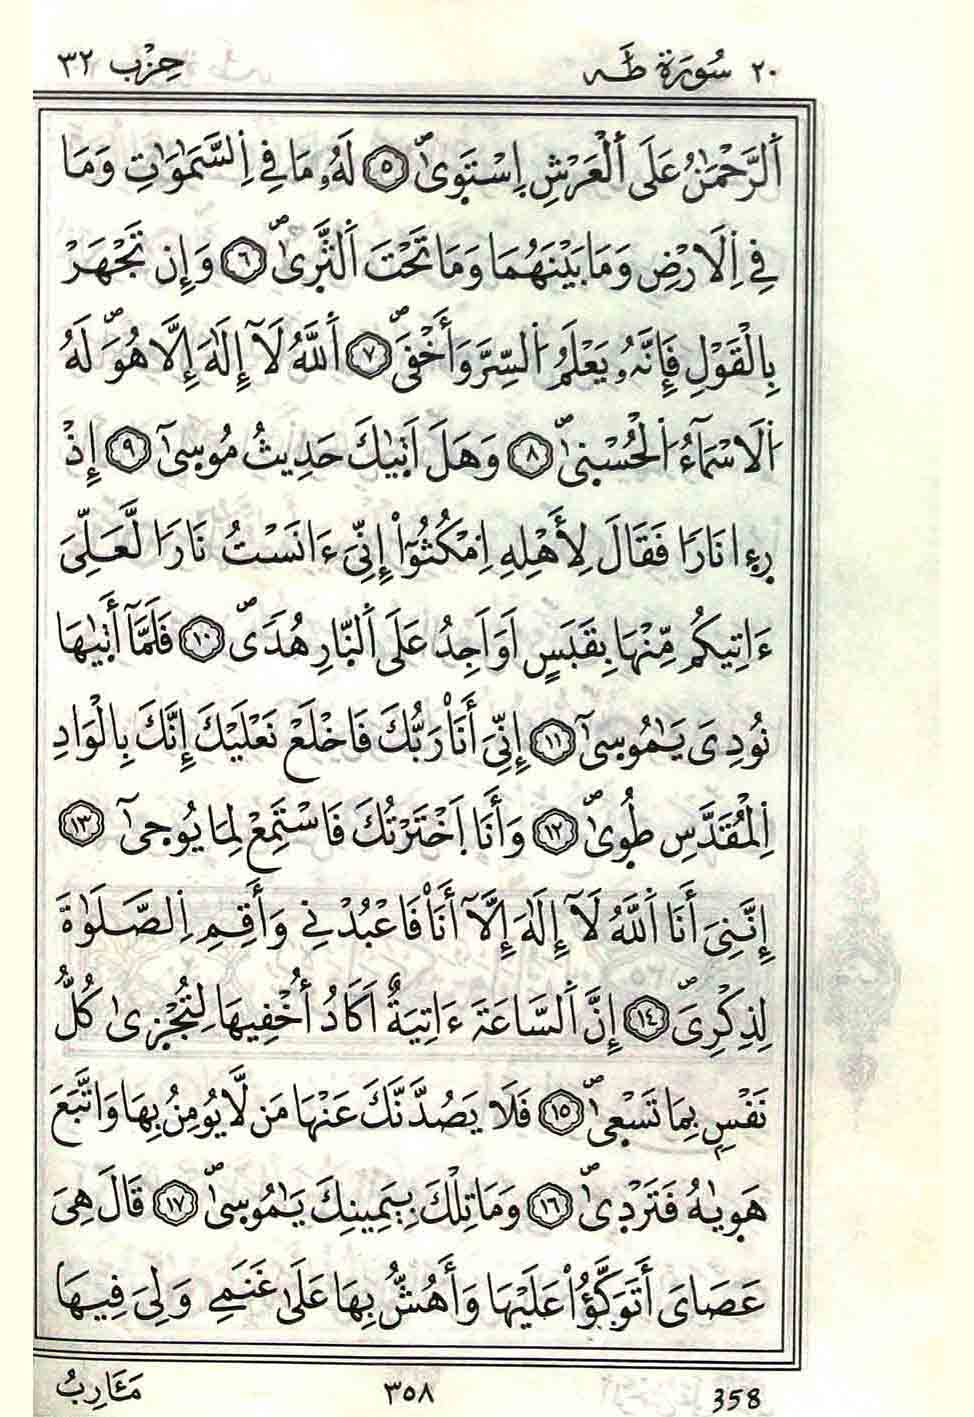 ٢٠ سُورَةُ طَهَ حِزْب ٣٢
اَ۬لرَّحْمَٰنُ عَلَى اَ۬لْعَرْشِ اِ۪سْتَو۪يٰۖ ٥ لَهُۥ مَا فِے اِ۬لسَّمَٰوَٰتِ وَمَا
فِے اِ۬لَارْضِ وَمَا بَيْنَهُمَا وَمَا تَحْتَ اَ۬لثَّر۪يٰۖ ٦ وَإِن تَجْهَرْ
بِالْقَوْلِ فَإِنَّهُۥ يَعْلَمُ اُ۬لسِّرَّ وَأَخْفَيۖ ٧ اَ۬للَّهُ لَآ إِلَٰهَ إِلَّا هُوَۖ لَهُ
اُ۬لَاسْمَآءُ اُ۬لْحُسْن۪يٰۖ ٨ وَهَلَ اَت۪يٰكَ حَدِيثُ مُوس۪يٰٓ ٩ إِذْ
ر۪ء۪ا نَارًا فَقَالَ لِأَهْلِهِ اِ۟مْكُثُوٓاْ إِنِّيَ ءَانَسْتُ نَارًا لَّعَلِّيَ
ءَاتِيكُم مِّنْهَا بِقَبَسٍ اَوَ اَجِدُ عَلَى اَ۬لنّ۪ارِ هُدًيۖ ١٠ فَلَمَّآ أَت۪يٰهَا
نُودِيَ يَٰمُوس۪يٰٓ ١١ إِنِّيَ أَنَا۠ رَبُّكَ فَاخْلَعْ نَعْلَيْكَ إِنَّكَ بِالْوَادِ
اِ۬لْمُقَدَّسِ طُو۪يٰۖ ١٢ وَأَنَا اَ۪خْتَرْتُكَ فَاسْتَمِعْ لِمَا يُوح۪يٰٓ ١٣
إِنَّنِيَ أَنَا اَ۬للَّهُ لَآ إِلَٰهَ إِلَّآ أَنَا۠ فَاعْبُدْنِے وَأَقِمِ اِ۬لصَّلَوٰةَ
لِذِكْرِيَۖ ١٤ إِنَّ اَ۬لسَّاعَةَ ءَاتِيَةٌ اَكَادُ أُخْفِيهَا لِتُجْز۪يٰ كُلُّ
نَفْسٍۢ بِمَا تَسْع۪يٰۖ ١٥ فَلَا يَصُدَّنَّكَ عَنْهَا مَن لَّا يُومِنُ بِهَا وَاتَّبَعَ
هَو۪يٰهُ فَتَرْد۪يٰۖ ١٦ وَمَا تِلْكَ بِيَمِينِكَ يَٰمُوس۪يٰۖ ١٧ قَالَ هِيَ
عَصَايَ أَتَوَكَّؤُاْ عَلَيْهَا وَأَهُشُّ بِهَا عَلَىٰ غَنَمِے وَلِيَ فِيهَا
مَـَٔارِبُ ٣٥٨ 358